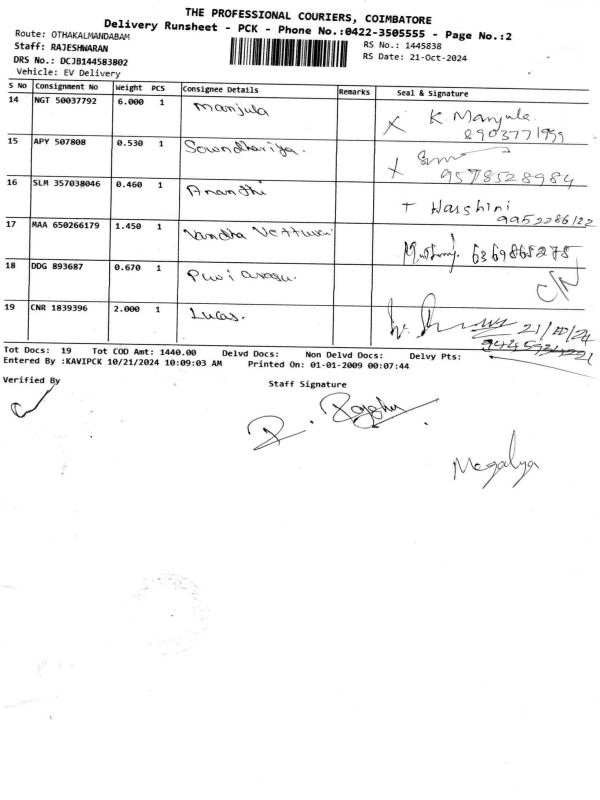 THE PROFESSIONAL COURIERS, COIMBATORE
Delivery Runsheet - PCK - Phone No.:0422-3505555 - Page No.:2
Route: OTHAKALMANDABAM
RS No.: 1445838
Staff: RAJESHWARAN
RS Date: 21-Oct-2024
DRS No.: DCJB144583802
Vehicle: EV Delivery
S No Consignment No Weight PCS Consignee Details Remarks Seal & Signature
14 NGT 50037792 6.000 1 Manjula X K. Manjula
8903771999
15 APY 507808 0.530 1 Sowndhariya. X
9578528984
16 SLM 357038046 0.460 1 Ananthi T Harshini
9952286122
17 MAA 650266179 1.450 1 Vandha 6369865275
18 DDG 893687 0.670 1 C/N
19 CNR 1839396 2.000 1 Lucas. 21/10/24
Tot Docs: 19 Tot COD Amt: 1440.00 Delvd Docs: Non Delvd Docs: Delvy Pts:
Entered By :KAVIPCK 10/21/2024 10:09:03 AM Printed On: 01-01-2009 00:07:44
Verified By Staff Signature
Megalya